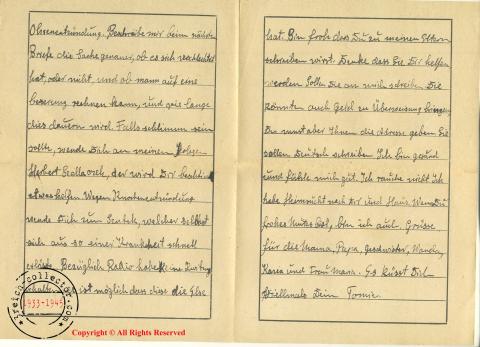 Ohrenentzündung. Beschreibe mir beim nächsten
Briefe die Sache genauer, ob es sich verschlechtert
hat, oder nicht, und ob mann auf eine
besserung rechnen kann, und wie lange
dies dauern wird. Falls schlimm sein
sollte, wende Dich an meinen
Herbert der wird Dir
etwas helfen Wegen
wende Dich zum welcher selbst
sich aus so einer Krankheit schnell
Bezüglich Radio habe
ist möglich dass diese die Else
hat. Bin froh das Du zu meinen Eltern
schreiben wirst. Denke das Sie Dir helfen
werden Sollen Sie an mich schreiben Sie
könnten auch Geld zu Überweisung bringen
Du must aber Ihnen die Adresse geben Sie
sollen Deutsch schreiben Ich bin gesund
und fühle mich gut. Ich rauche nicht Ich
habe Heimsucht nach Dir und Haus. Wenn Du
frohes Mutes bist, bin ich auch. Grüsse
für dei Mama, Papa, Geschwister, Wanda,
und Frau Maria. Es küsst Dich
Vielmals Dein Tomie.
reich-collector.com
1933-1945
Copyright © All Rights Reserved